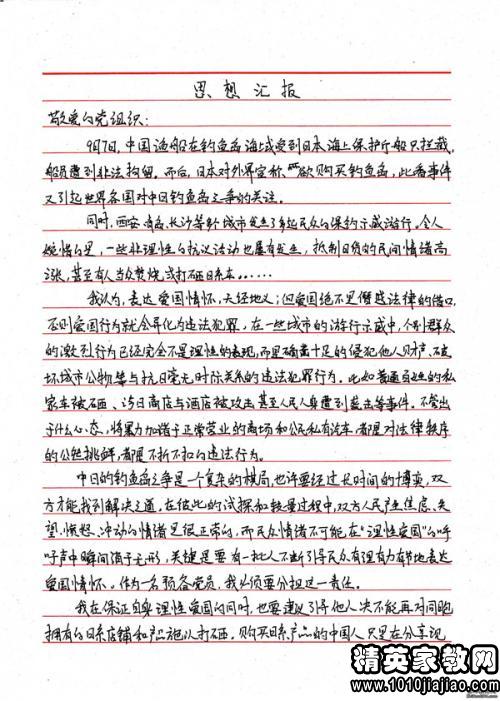 思想汇报
敬爱的党组织:
9月7日,中国渔船在钓鱼岛海域受到日本海上保护厅船只拦截,
船员遭到非法拘留。而后,日本对外界宣称欲购买钓鱼岛,此番事件
又引起世界各国对中日钓鱼岛之争的关注。
同时,西安、青岛、长沙等城市发生了多起民众的保钓示威游行。令人
惋惜的是,一些非理性的抗议活动也屡有发生,抵制日货的民间情绪高
涨,甚至有人当众焚烧或打砸日系车......
我认为,表达爱国情怀,天经地义;但爱国绝不是僭越法律的借口,
否则爱国行为就会异化为违法犯罪,在一些城市的游行示威中,个别群众
的激烈行为已经完全不是理性的表现,而是确凿十足的侵犯他人财产、破
坏城市公物等与抗日毫无实际关系的违法犯罪行为。比如普通百姓的私
家车被砸、涉日商店与酒店被攻击甚至人民人身遭到袭击等事件。不管出
于什么心态,将暴力加诸于正常营业的商场和公民私有汽车,都是对法律秩序
的公然挑衅,都是不折不扣的违法行为。
中日的钓鱼岛之争是一个复杂的棋局,也许要经过长时间的博弈,双
方才能找到解决之道,在彼此的试探和较量过程中,双方人民产生焦虑、失
望、愤怒、冲动的情绪是很正常的,而民众情绪不可能在"理性爱国"的呼
吁声中瞬间消于无形,关键是要有一批人不断引导民众有理有力有节地表达
爱国情怀。作为一名预备党员,我必须要分担这一责任。
我在保证自身理性爱国的同时,也要建议引导他人决不能再对同胞
拥有的日系店铺和产品施以打砸。购买日系产品的中国人只是在分享现
精英家教网
www.1010jiajiao.com